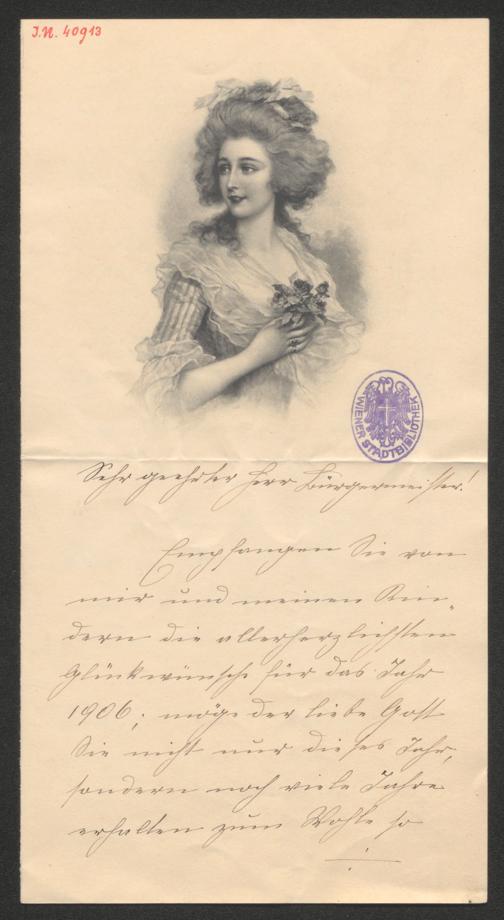 J.N. 40913
WIENER STADTBIBLIOTHEK
Sehr geehrter Herr Bürgermeister!
Empfangen Sie von
mir und meinen Kin-
dern die allerherzlichsten
Glückwünsche für das Jahr
1906; möge der liebe Gott
Sie nicht nur dieses Jahr,
sondern noch viele Jahre
erhalten zum Wohle so